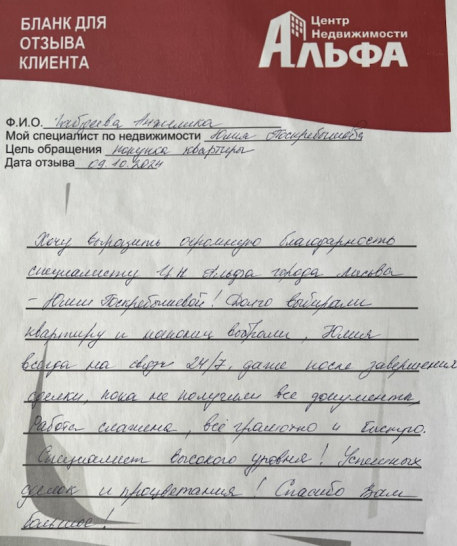 БЛАНК ДЛЯ
ОТЗЫВА
КЛИЕНТА
Центр
Недвижимости
АЛЬФА
Ф.И.О. Анжелика
Мой специалист по недвижимости Юлия Поскребышева
Цель обращения покупка квартиры
Дата отзыва 09.10.2024
Хочу выразить огромную благодарность
специалисту ЦН Альфа города Лысьва
- Юлии Поскребышевой! Долго выбирали
квартиру и наконец выбрали, Юлия
всегда на связи 24/7, даже после завершения
сделки, пока не получили все документы,
Работа слажена, всё грамотно и быстро.
Специалист высокого уровня! Успешных
сделок и процветания! Спасибо Вам
большое!